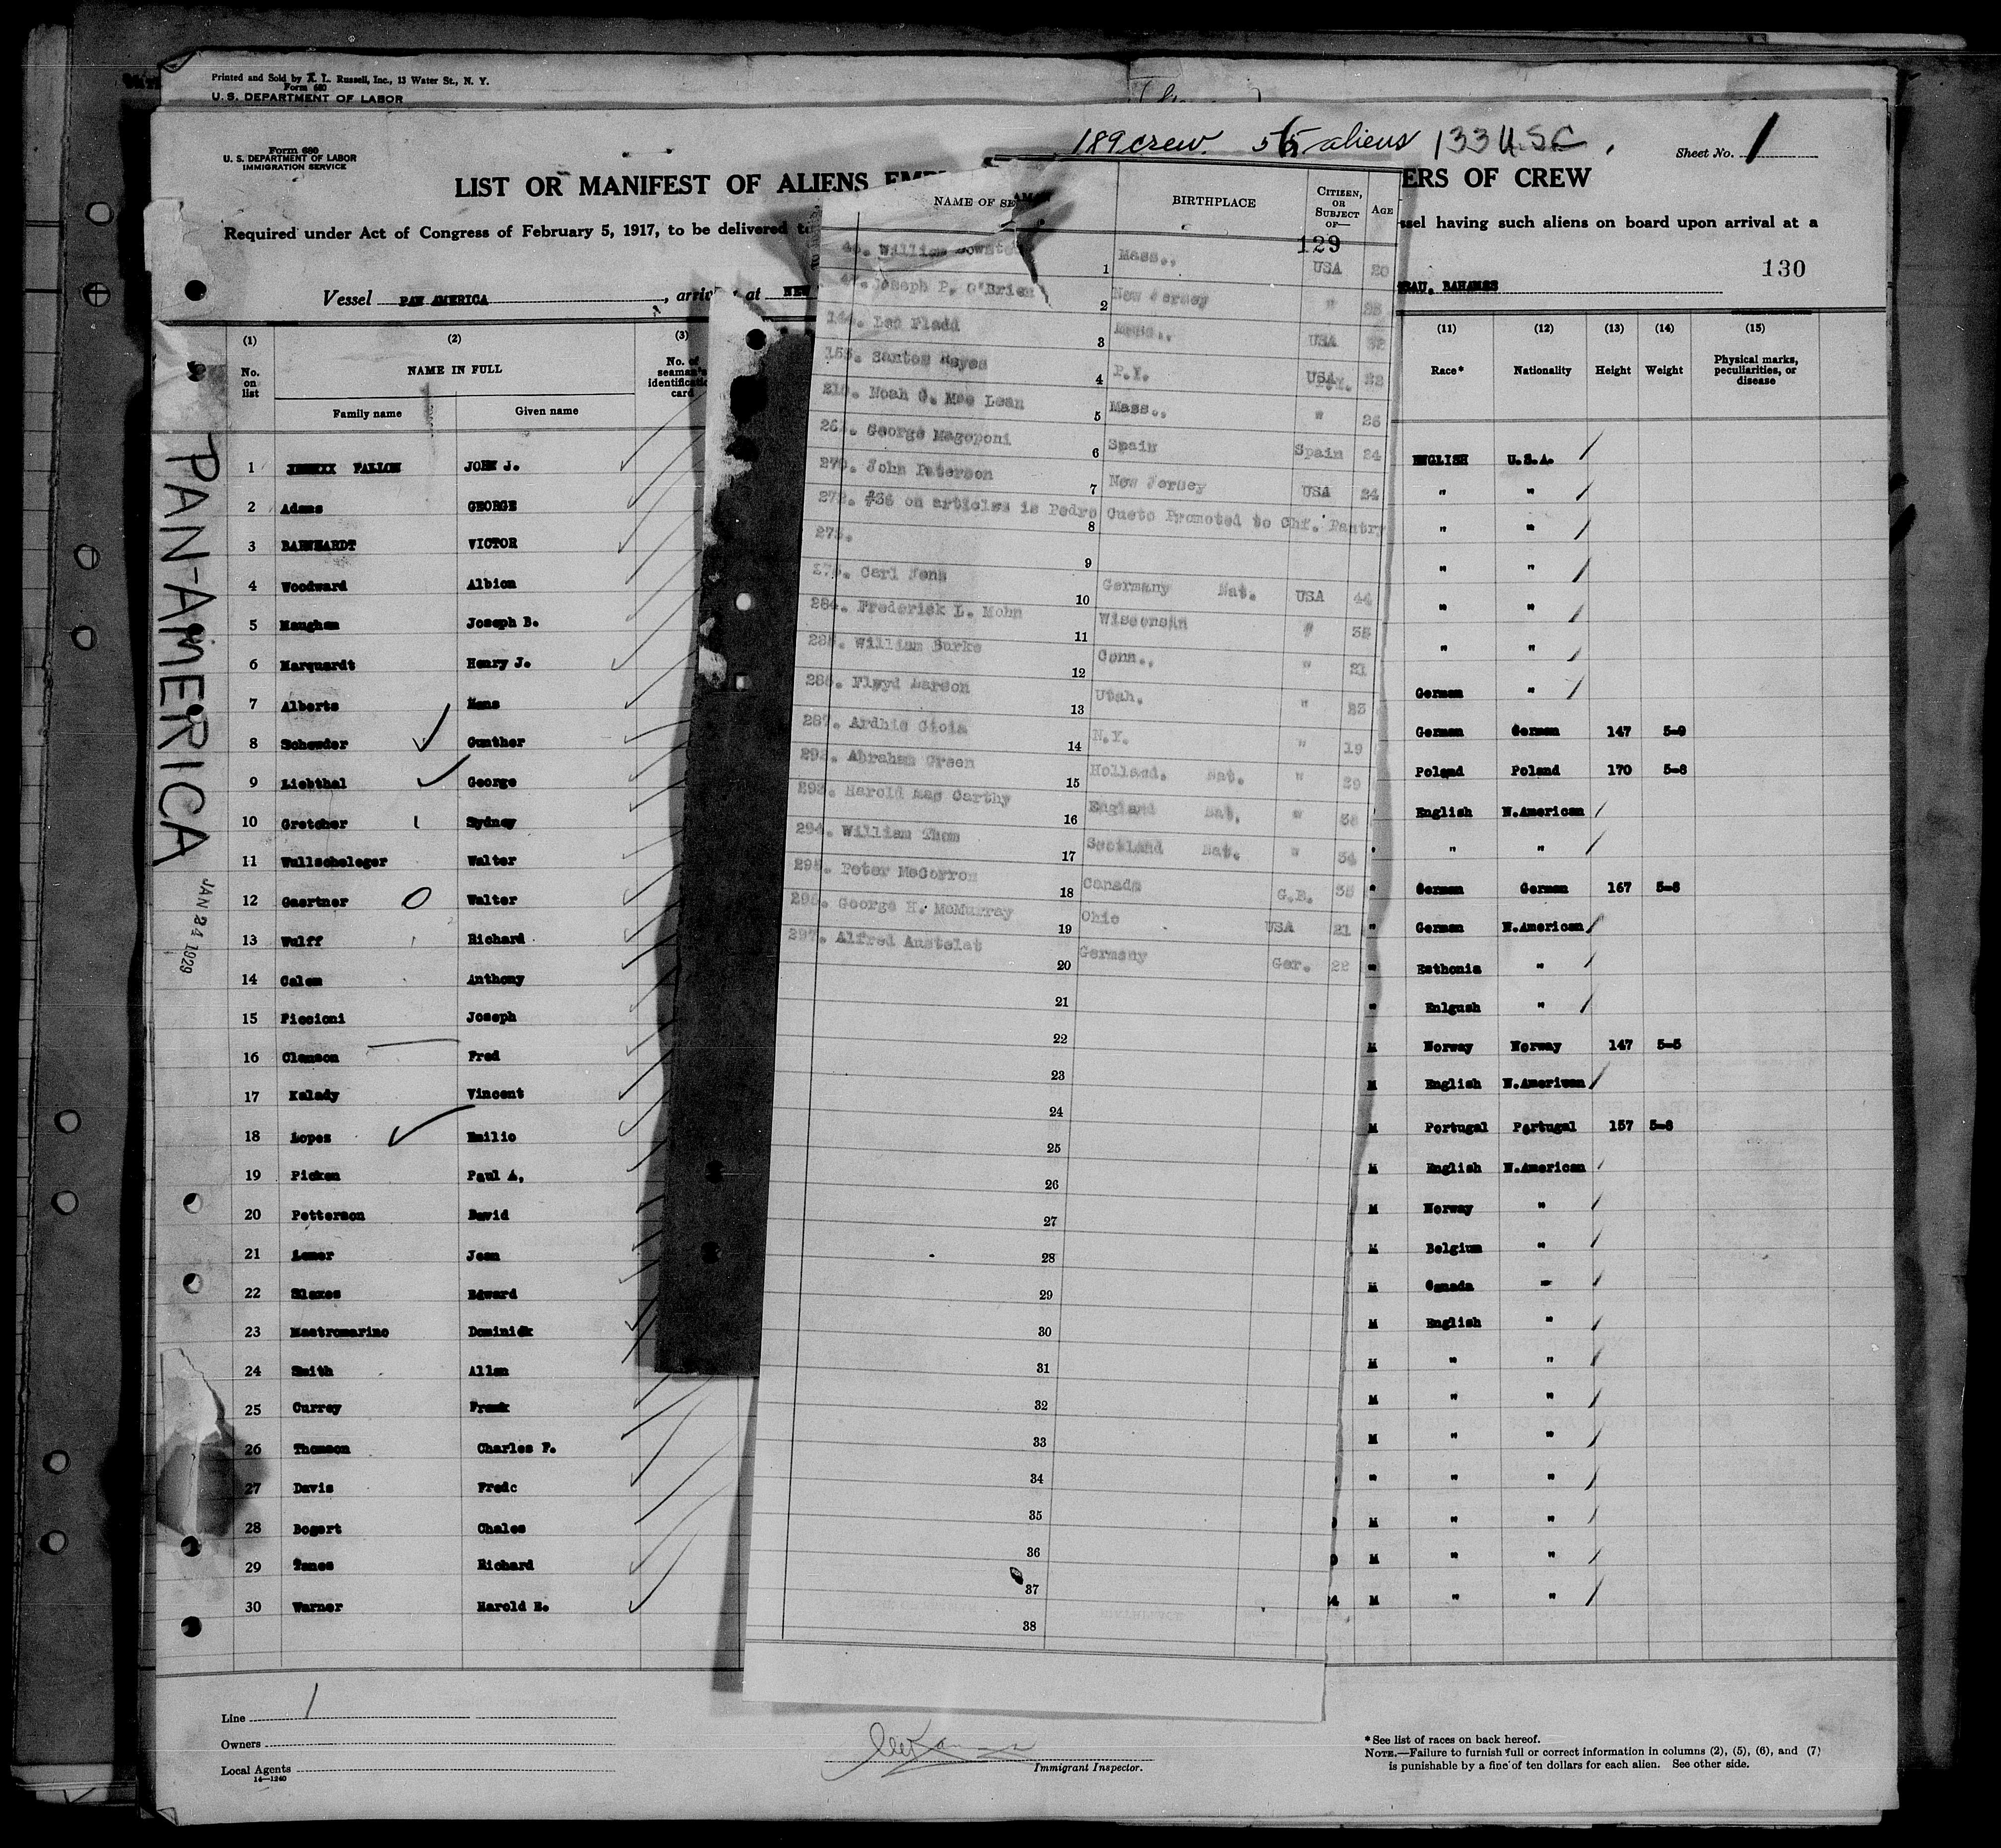 Printed and Sold by A. L. Russell, Inc., 13 Water St., N. Y.
Form 680
U. S. DEPARTMENT OF LABOR
189 crew. 56 aliens 133 U.S.C.
Form 680
U. S. DEPARTMENT OF LABOR
IMMIGRATION SERVICE
Sheet No. 1
LIST OR MANIFEST OF ALIENS EMP
ERS OF CREW
Required under Act of Congress of February 5, 1917, to be delivered to
ssel having such aliens on board upon arrival at a
130
Vessel PAN AMERICA, arriv at NEW
BAHAMES
(1) (2) (3)
No. on list NAME IN FULL No. of seaman's identification card
Family name Given name
1 FALLON JOHN J.
2 Adams GEORGE
3 BARNHARDT VICTOR
4 Woodward Albion
5 Maughan Joseph B.
6 Marquardt Henry J.
7 Alberts Hans
8 Schewder Gunther
9 Liebthal George
10 Gretcher Sydney
11 Wullscheleger Walter
12 Gaertner Walter
13 Wulff Richard
14 Calem Anthony
15 Piccioni Joseph
16 Clemson Fred
17 Kalady Vincent
18 Lopez Emilio
19 Picken Paul A.
20 Petterson David
21 Lemer Jean
22 Slaxes Edward
23 Mastromarino Dominick
24 Smith Allan
25 Currey Frank
26 Thomson Charles F.
27 Davis Fredc
28 Bogert Chales
29 Richard
30 Warner Harold E.
PAN-AMERICA
JAN 24 1929
NAME OF SEAMAN BIRTHPLACE CITIZEN, OR SUBJECT OF— AGE
129
William 1 Mass., USA 20
Joseph P. O'Brien 2 New Jersey "
Leo Fladd 3 USA
Santos Reyes 4 USA
Noah C. Mac Lean 5 Mass., " 26
George Magoponi 6 Spain Spain 24
270. John Paterson 7 New Jersey USA 24
272. #36 on articles is Pedro Cueto Promoted to Chf. Pantry
8
273. 9
Carl Jens 10 Germany Nat. USA 44
284. Frederick L. Mohn 11 Wisconsin " 35
William Burke 12 Conn., " 21
286. Floyd Larson 13 Utah. " 23
287. Ardhie Gioia 14 N.Y. " 19
Abraham Green 15 Holland. Nat. " 29
293. Harold Mac Carthy 16 England Nat. "
294. William Thom 17 Scotland Nat. " 34
295. Peter McCorron 18 Canada G.B. 35
296. George H. McMurray 19 Ohio USA 21
297. Alfred Anstelat 20 Germany Ger. 22
21
22
23
24
25
26
27
28
29
30
31
32
33
34
35
36
37
38
(11) (12) (13) (14) (15)
Race* Nationality Height Weight Physical marks, peculiarities, or disease
ENGLISH U.S.A.
" "
" "
" "
" "
" "
German "
German German 147 5-9
Poland Poland 170 5-8
English N.American
" "
German German 167 5-8
German N.American
Esthonia "
Enlgush "
M Norway Norway 147 5-5
M English N.American
M Portugal Portugal 157 5-8
M English N.American
M Norway "
M Belgium "
M Canada "
M English "
M " "
M " "
M " "
" " "
M " "
M " "
M " "
Line 1
Owners
Local Agents
14—1240
Immigrant Inspector.
* See list of races on back hereof.
NOTE.—Failure to furnish full or correct information in columns (2), (5), (6), and (7)
is punishable by a fine of ten dollars for each alien. See other side.